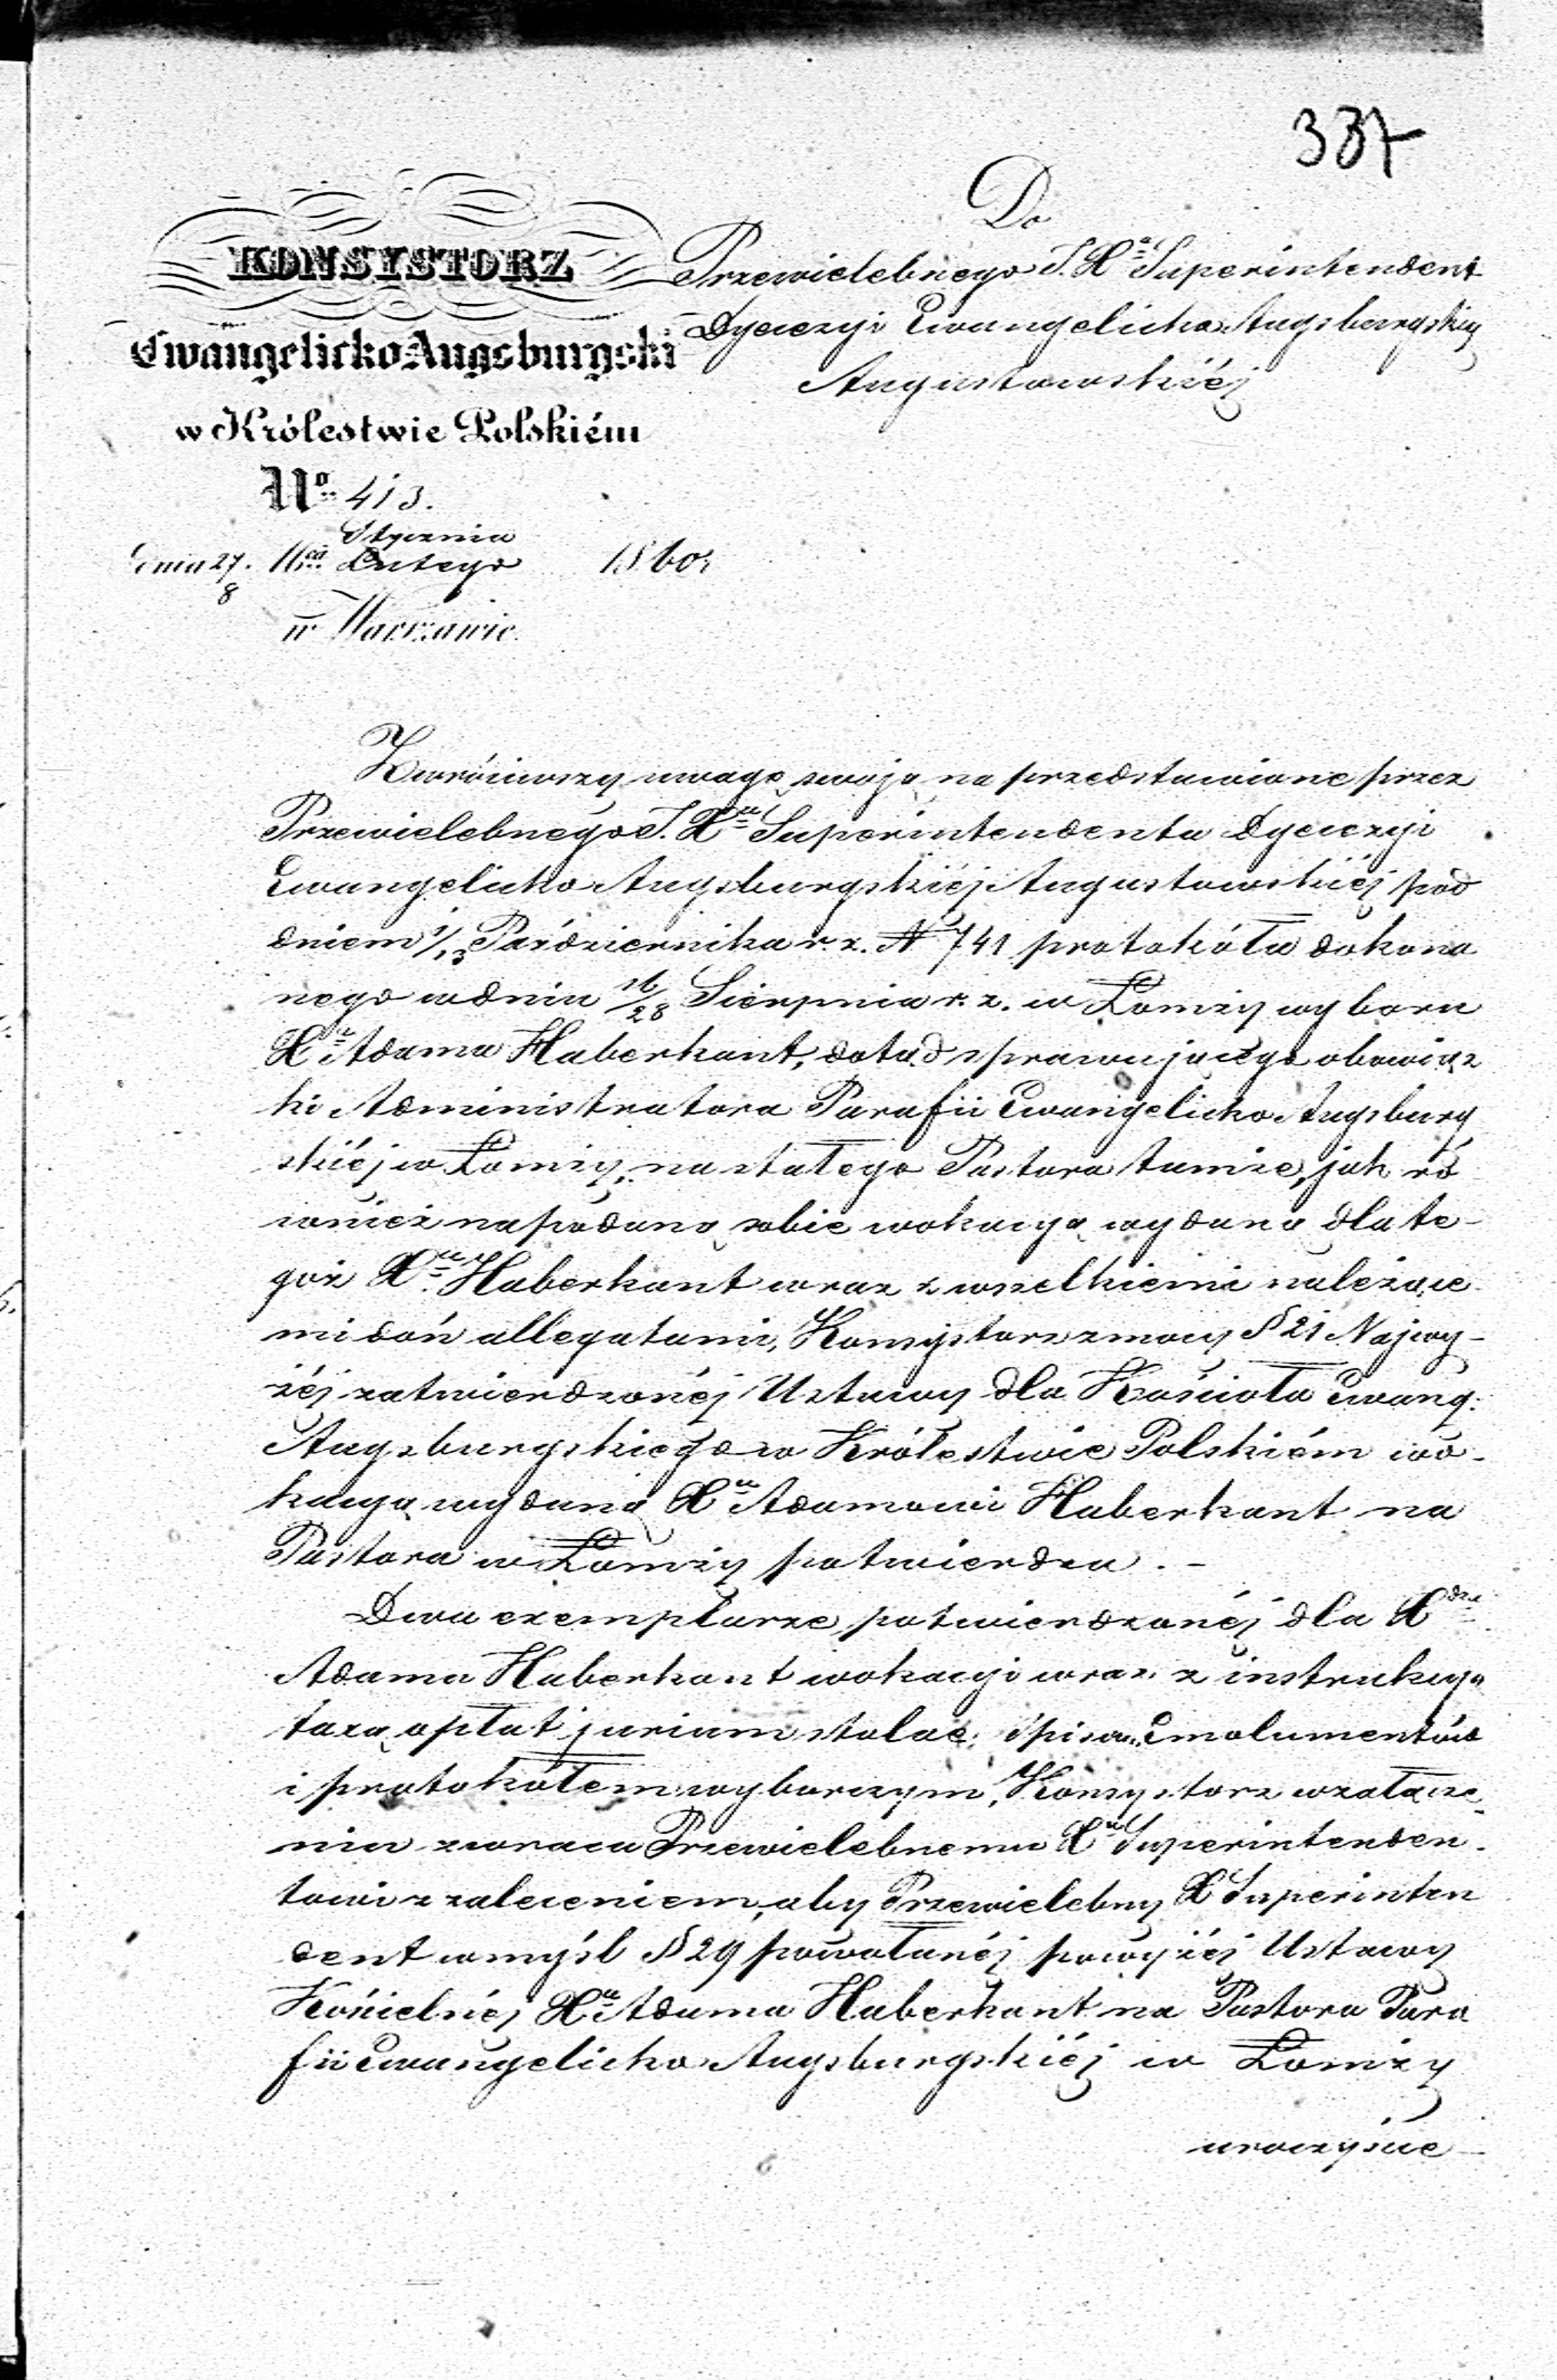 337
Do
Przewielebnego J. Xa Superintendent
Dyecezyi Ewangelicko Augsburgskiej
Augustowskiéj
KONSYSTORZ
Ewangelicko Augsburgski
w Królestwie Polskiém
No 413.
Stycznia
dnia 27. Mca Lutego 1860r
8
w Warszawie.
Zwróciwszy uwagę swoją na przedstawione przez
Przewielebnego J. Xa Superintendenta Dyecezyi
Ewangelicko Augsburgskiéj Augustowskiéj pod
dniem 1/13 Października r. z. N 741 protokółu dokona
nego w dniu 16/28 Sierpnia r. z. w Łomży wyboru
Xa Adama Haberkant, dotąd sprawującego obowiąz
ki Administratora Parafii Ewangelicko Augsburg
skiéj w Łomży, na stałego Pastora tamże, jak ró
wnież na podaną sobie wokacyą wydaną dla te-
goż Xa Haberkant wraz z wszelkiemi należące
mi doń allegatami, Konsystorz z mocy § 21 Najwy-
żéj zatwierdzonéj Ustawy dla Kościoła Ewang:
Augsburgskiego w Królestwie Polskiém wo-
kacyą wydaną Xu Adamowi Haberkant na
Pastora w Łomży potwierdza. -
Dwa exemplarze potwierdzonéj dla Xdza
Adama Haberkant wokacyi wraz z instrukcyą
taxą opłat jurium stolae, spisem Emolumentów
i protokółem wyborczym, Konsystorz w załącze
niu zwraca Przewielebnemu Xu Superintenden-
towi z zaleceniem, aby Przewielebny X Superinten
dent w myśl § 29 powołanéj powyżéj Ustawy
Kościelnéj Xa Adama Haberkant na Pastora Para
fii Ewangelicko Augsburgskiéj w Łomży
uroczyście